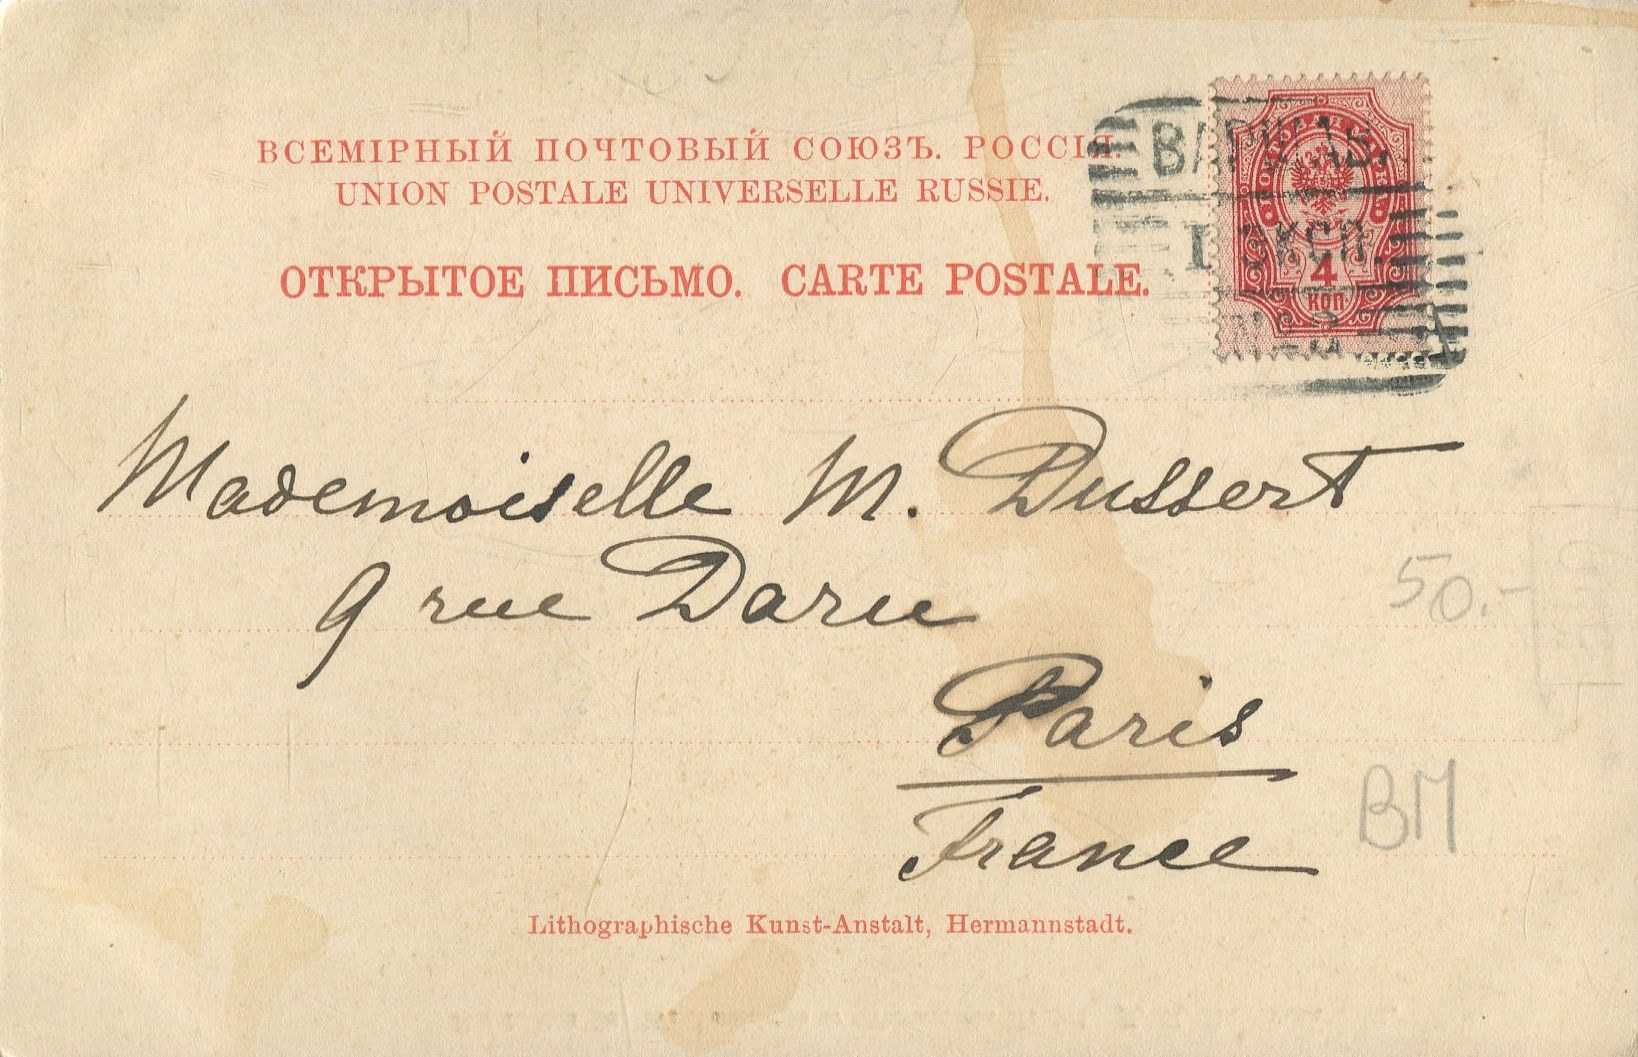 ВСЕМІРНЫЙ ПОЧТОВЫЙ СОЮЗЪ. РОССІЯ.
UNION POSTALE UNIVERSELLE RUSSIE.
ОТКРЫТОЕ ПИСЬМО. CARTE POSTALE.
ВАРШАВ.
ЭКСП.
4
КОП.
Mademoiselle M. Dussert
9 rue Daru
50.-
Paris
BM
France
Lithographische Kunst-Anstalt, Hermannstadt.